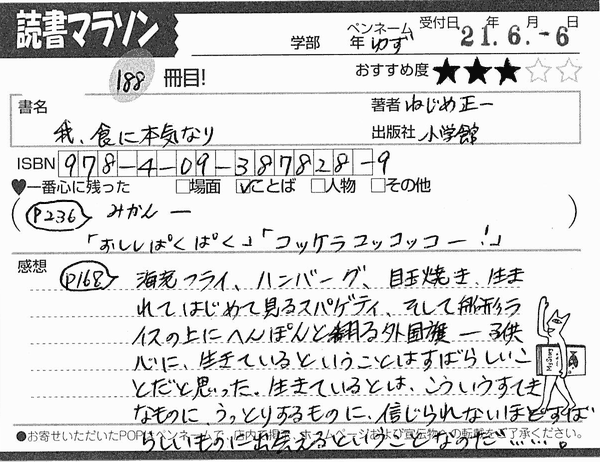 読書マラソン
学部 年 ペンネーム ゆず 受付日 年 月 日
21.6.-6
188 冊目!
おすすめ度 ★★★☆☆
書名 著者 ねじめ正一
我、食に本気なり 出版社 小学館
ISBN 978-4-09-387828-9
♥一番心に残った □場面 ☑ことば □人物 □その他
(P236) みかん ―
「おししぱくぱく」「コッケラコッコッコー!」
感想
(P168) 海老フライ、ハンバーグ、目玉焼き、生ま
れてはじめて見るスパゲティ、そして船形ラ
イスの上にへんぽんと翻る外国旗 ― 子供
心に、生きているということはすばらしいこ
とだと思った。生きているとは、こういうすてき
なものに、うっとりするものに、信じられないほどすば
らしいものに出会えるということなのだ……。
●お寄せいただいたPOPはペンネームで、店内で掲示、ホームページおよび宣伝物への転載をご了承ください。